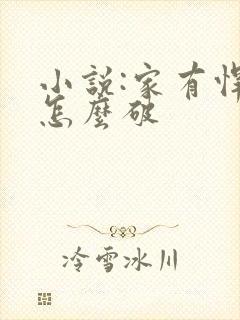 小說:家有悍
怎麼破
冷雪冰川